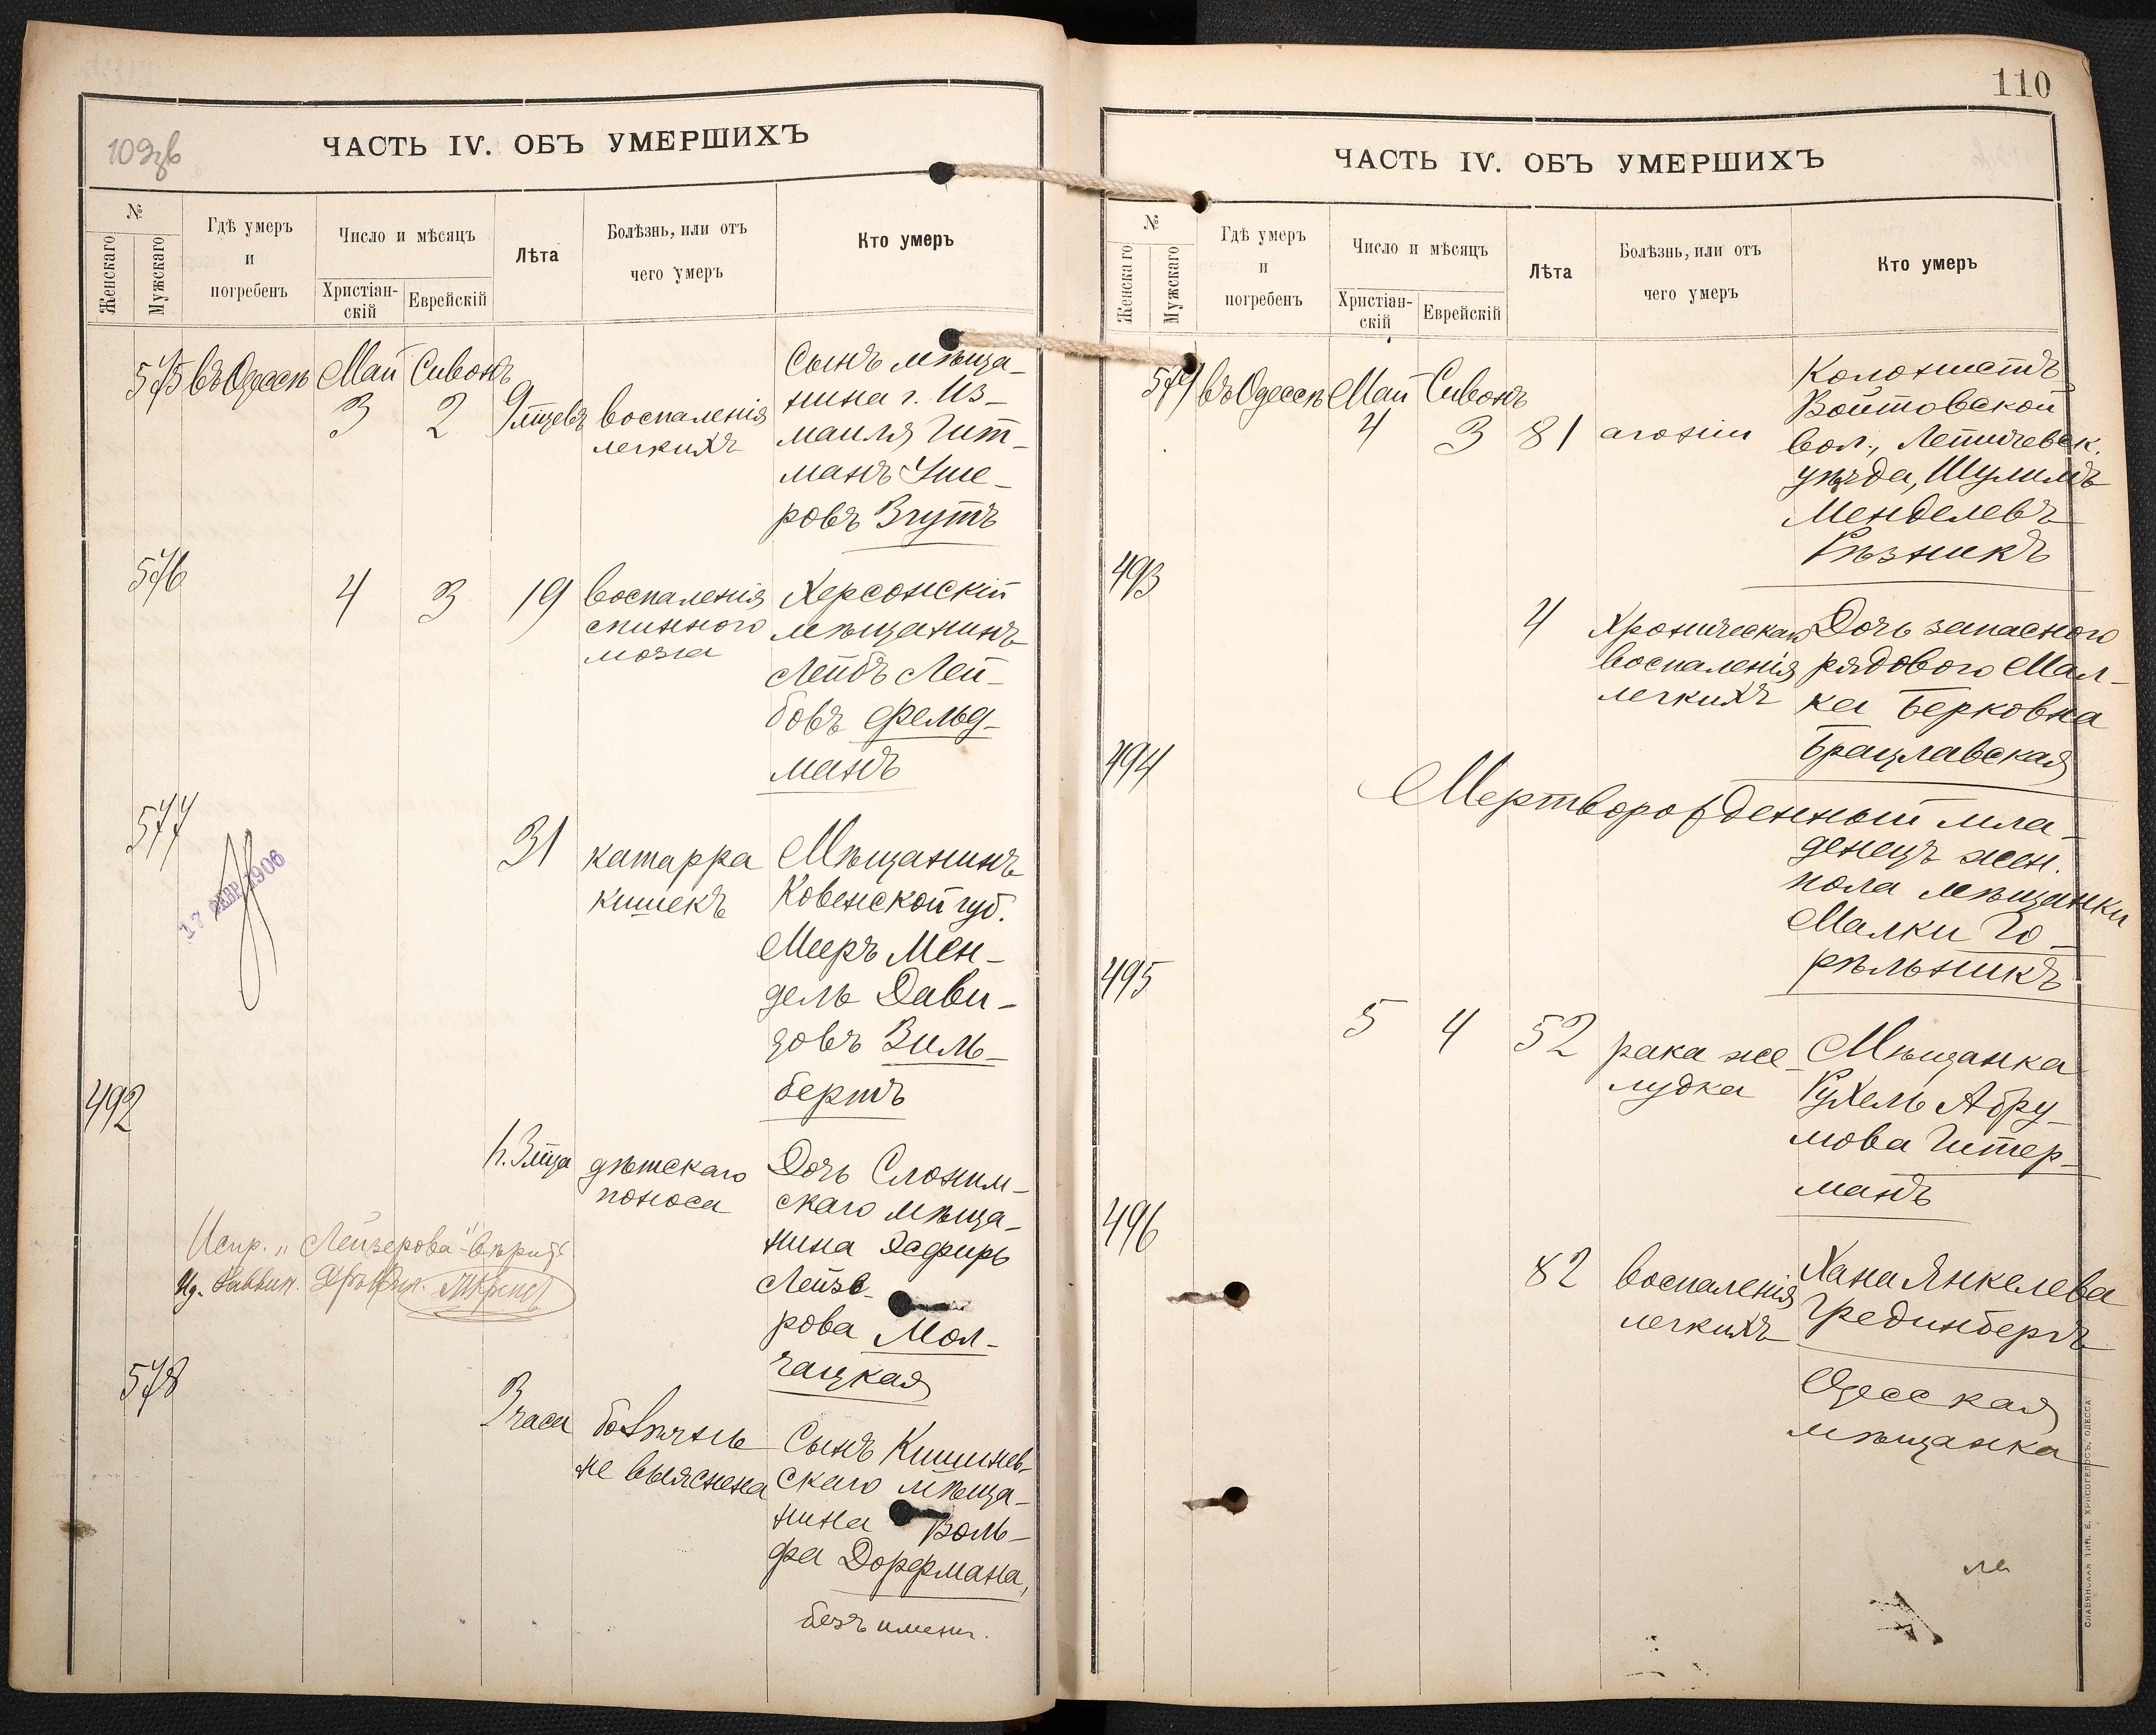 109зв
ЧАСТЬ IV. ОБЪ УМЕРШИХЪ
№
Женскаго
Мужскаго
Гдѣ умеръ
и
погребенъ
Число и мѣсяцъ
Христіан-
скій
Еврейскій
Лѣта
Болѣзнь, или отъ
чего умеръ
Кто умеръ
575 въ Одессѣ Май Сивонъ
3 2 9 мцевъ воспаленія
легкихъ
Сынъ мѣща-
нина г. Из-
маиля Гит-
манъ Уше-
ровъ Згутъ
576
4 3 19 воспаленія
спинного
мозга
Херсонскій
мѣщанинъ
Лейбъ Лей-
бовъ Фельд-
манъ
577
31 катарра
кишекъ
Мѣщанинъ
Ковенской губ.
Мееръ Мен-
дель Дави-
довъ Зиль-
бертъ
1906
492
1. 3 мца дѣтскаго
поноса
Дочь Слоним-
скаго мѣща-
нина Эсфирь
Лейзе-
рова Мол-
чацкая
Испр. „Лейзерова" вѣрить
578
3 часа болѣзнь
не выяснена
Сынъ Кишинев-
скаго мѣща-
нина Воль-
фа Дорфмана,
безъ имени.
110
ЧАСТЬ IV. ОБЪ УМЕРШИХЪ
№
Женскаго
Мужскаго
Гдѣ умеръ
и
погребенъ
Число и мѣсяцъ
Христіан-
скій
Еврейскій
Лѣта
Болѣзнь, или отъ
чего умеръ
Кто умеръ
579 въ Одессѣ Май Сивонъ
4 3 81 агоніи
Колонистъ
Войтовской
вол., Летичевск.
уѣзда, Шулимъ
Менделевъ
Рѣзникъ
493
4 Хроническаго
воспаленія
легкихъ
Дочь запасного
рядового Мал-
ка Берковна
Брацлавская
494
Мертворожденный мла-
денецъ жен.
пола мѣщанки
Малки Го-
рѣльникъ
495
5 4 52 рака же-
лудка
Мѣщанка
Рухель Абру-
мова Гитер-
манъ
496
82 воспаленія
легкихъ
Хана Янкелева
Грединберъ
Одесская
мѣщанка
СЛАВЯНСКАЯ ТИП. Е. ХРИСОГЕЛОСЪ, ОДЕССА.